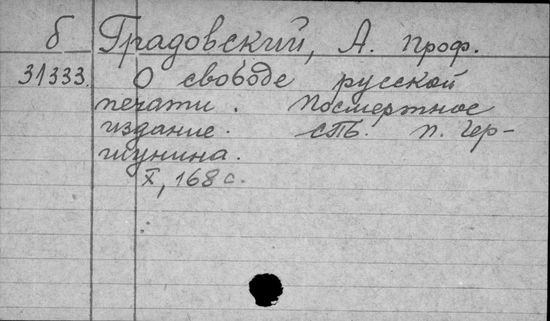 б Градовский, А. проф.
31333. О свободе русской
печати. Посмертное
издание. СПБ. п. Чер-
мунина.
X, 168 с.